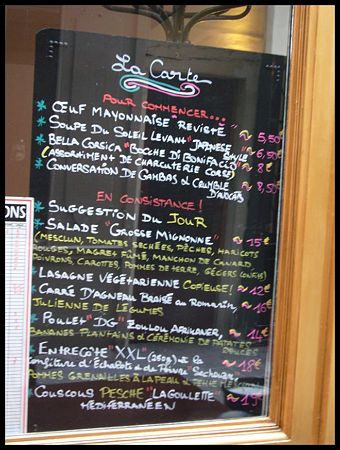 La Carte
POUR COMMENCER...
* ŒUF MAYONNAISE "REVISITÉ" ~ 5,50€
* SOUPE DU SOLEIL LEVANT "JAPENESE STYLE" ~ 6,50€
* BELLA CORSICA "BOCCHE DI BONIFACIO" ~ 8€
(ASSORTIMENT DE CHARCUTERIE CORSE)
* CONVERSATION DE GAMBAS & CRUMBLE D'AVOCATS ~ 8,50€
EN CONSISTANCE!
* SUGGESTION DU JOUR
* SALADE "GROSSE MIGNONNE" ~ 15€
(MESCLUN, TOMATES SECHÉES, PÊCHES, HARICOTS
ROUGES, MAGRET FUMÉ, MANCHON DE CANARD
POIVRONS, CAROTTES, POMMES DE TERRE, GÉSIERS CONFIS)
* LASAGNE VÉGÉTARIENNE COPIEUSE! ~ 12€
* CARRÉ D'AGNEAU BRAISÉ AU ROMARIN, ~ 16€
JULIENNE DE LÉGUMES
* POULET "DG" ZOULOU AFRIKANER, ~ 14€
BANANES PLANTAINS & CÉRÉMONIE DE PATATES DOUCES
* ENTRECÔTE XXL (250g) à la ~ 18€
Confiture d'Échalote & du Poivre "Sechouan"
POMMES GRENAILLES À LA PEAU &
* COUSCOUS PESCHE "LA GOULETTE" ~ 19€
MÉDITERRANEEN
ONS